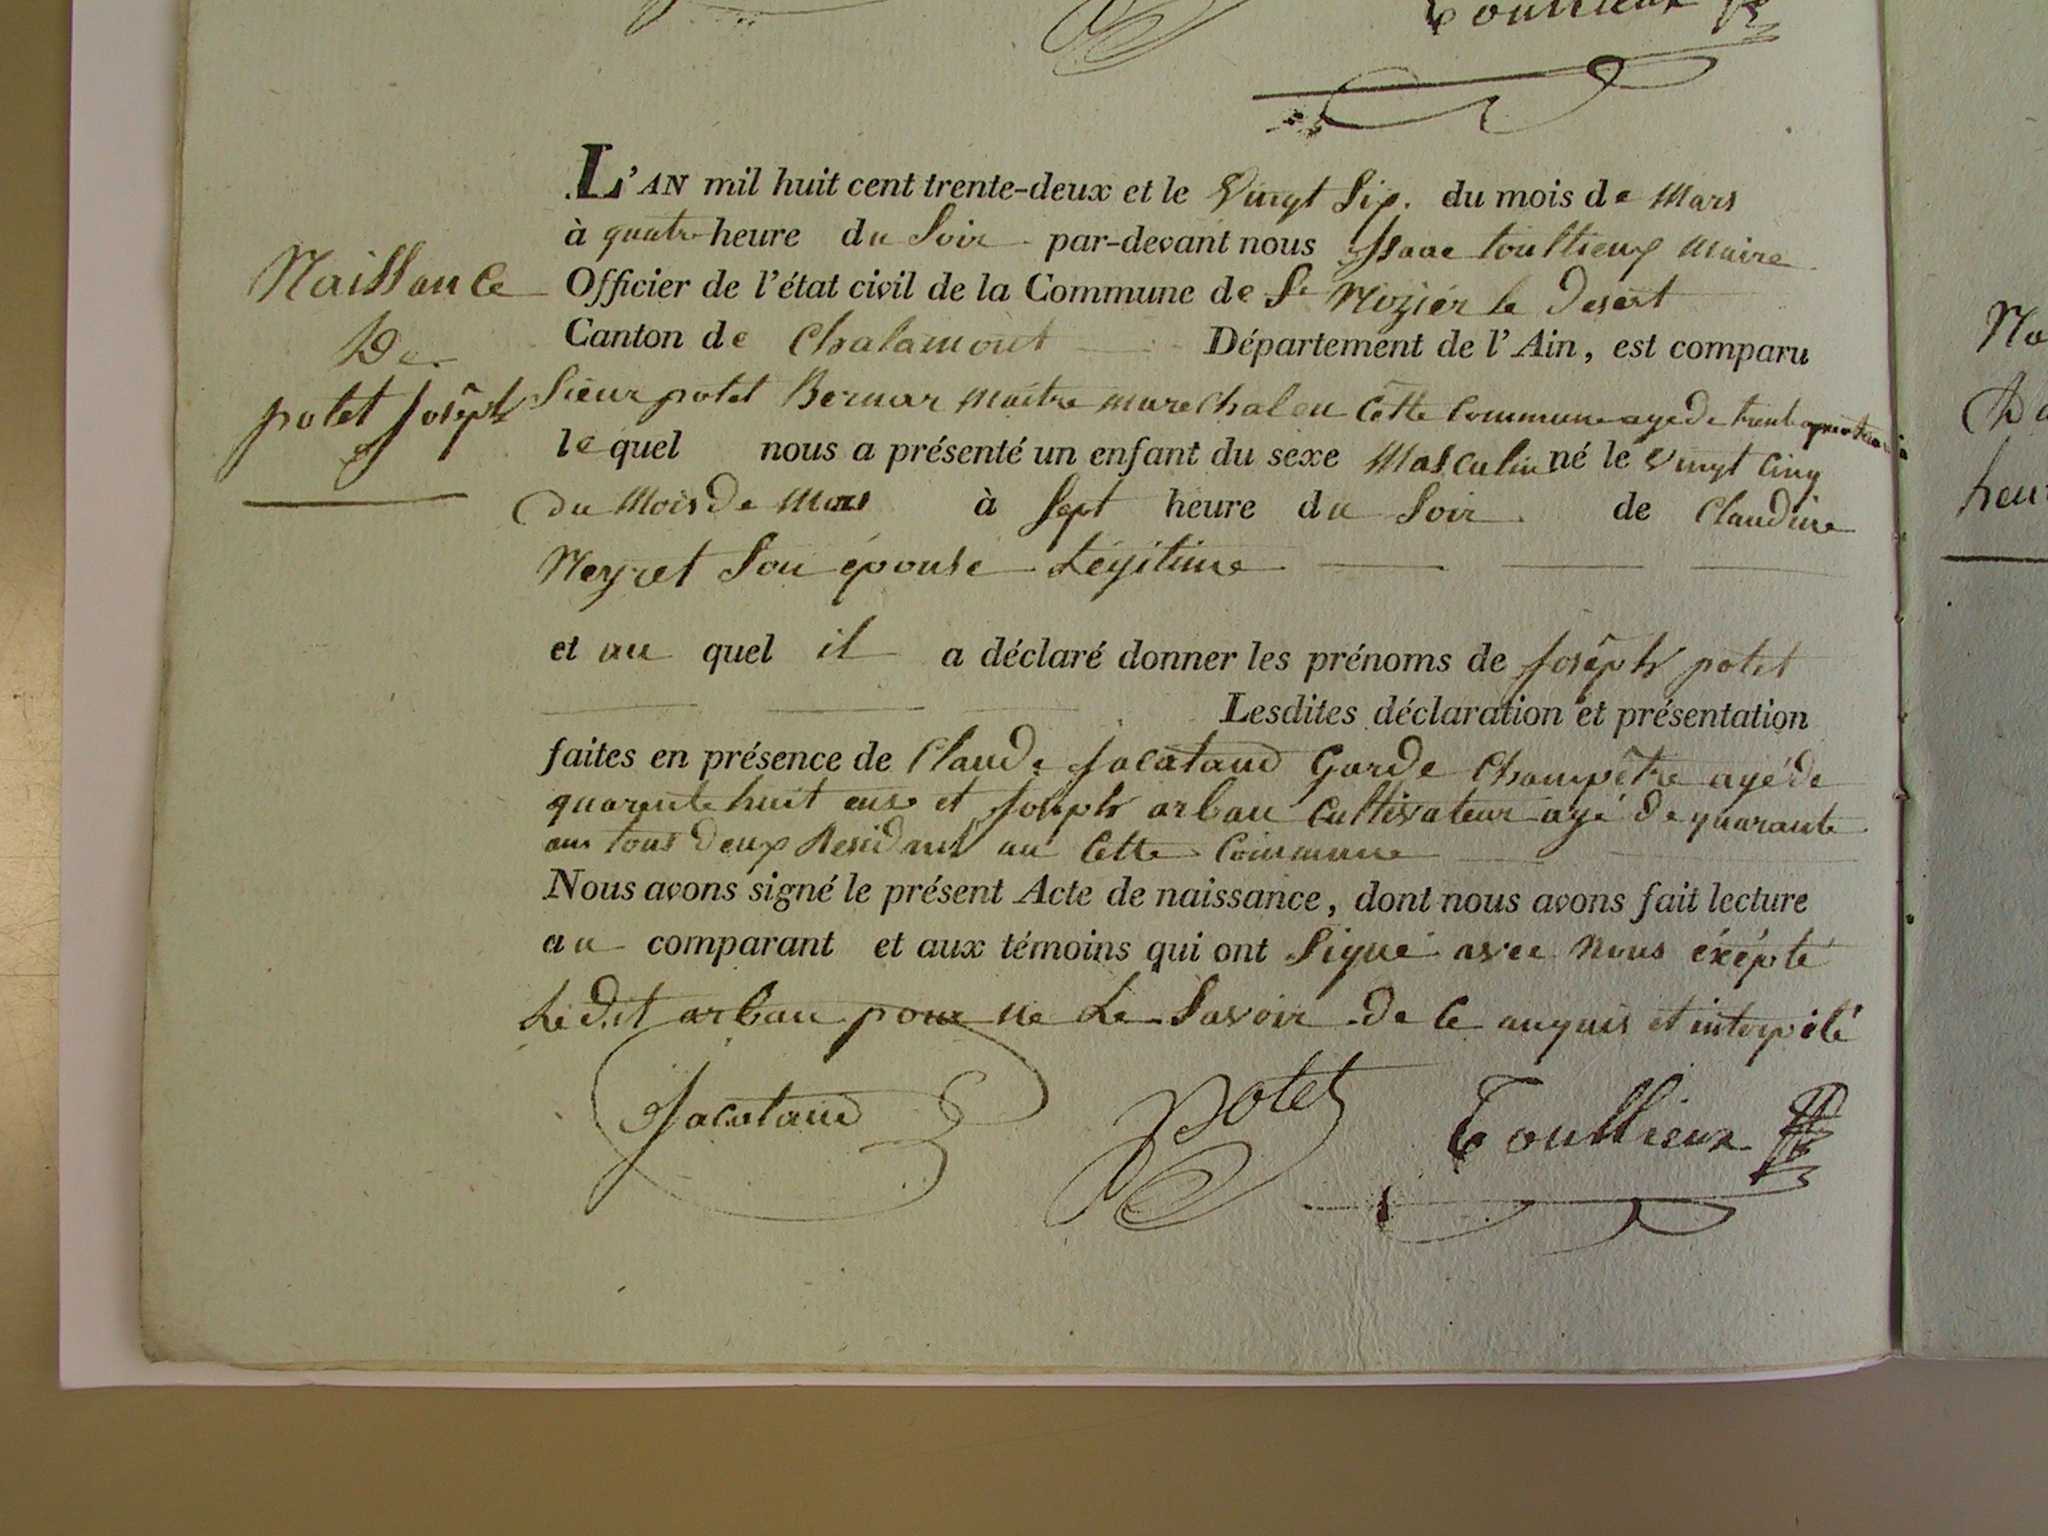 Toullieux
L'AN mil huit cent trente-deux et le Vingt Six. du mois de Mars
à quatre heure du Soir par-devant nous Isaac toullieux Maire
Naissance
De
potet Joseph
Officier de l'état civil de la Commune de St Nizier le Desert
Canton de Chalamont Département de l'Ain, est comparu
Sieur potet Bernar Maitre marechal en Cette Commune agé de trente
le quel nous a présenté un enfant du sexe Masculin né le Vingt Cinq
Du Mois De Mars à Sept heure du Soir de Claudine
Neyret Son épouse Légitime
et au quel il a déclaré donner les prénoms de Joseph potet
Lesdites déclaration et présentation
faites en présence de Claude Jacataud Garde Champêtre agé de
quarente huit ans et Joseph arbau Cultivateur agé de quarante
ans tous Deux Residant au Cette Commune
Nous avons signé le présent Acte de naissance, dont nous avons fait lecture
au comparant et aux témoins qui ont Signé avec Nous éxépté
Le dit arbau pour ne Le Savoir de Ce anquis et interpélé
Jacataud Potet Toullieux
No
De
heu